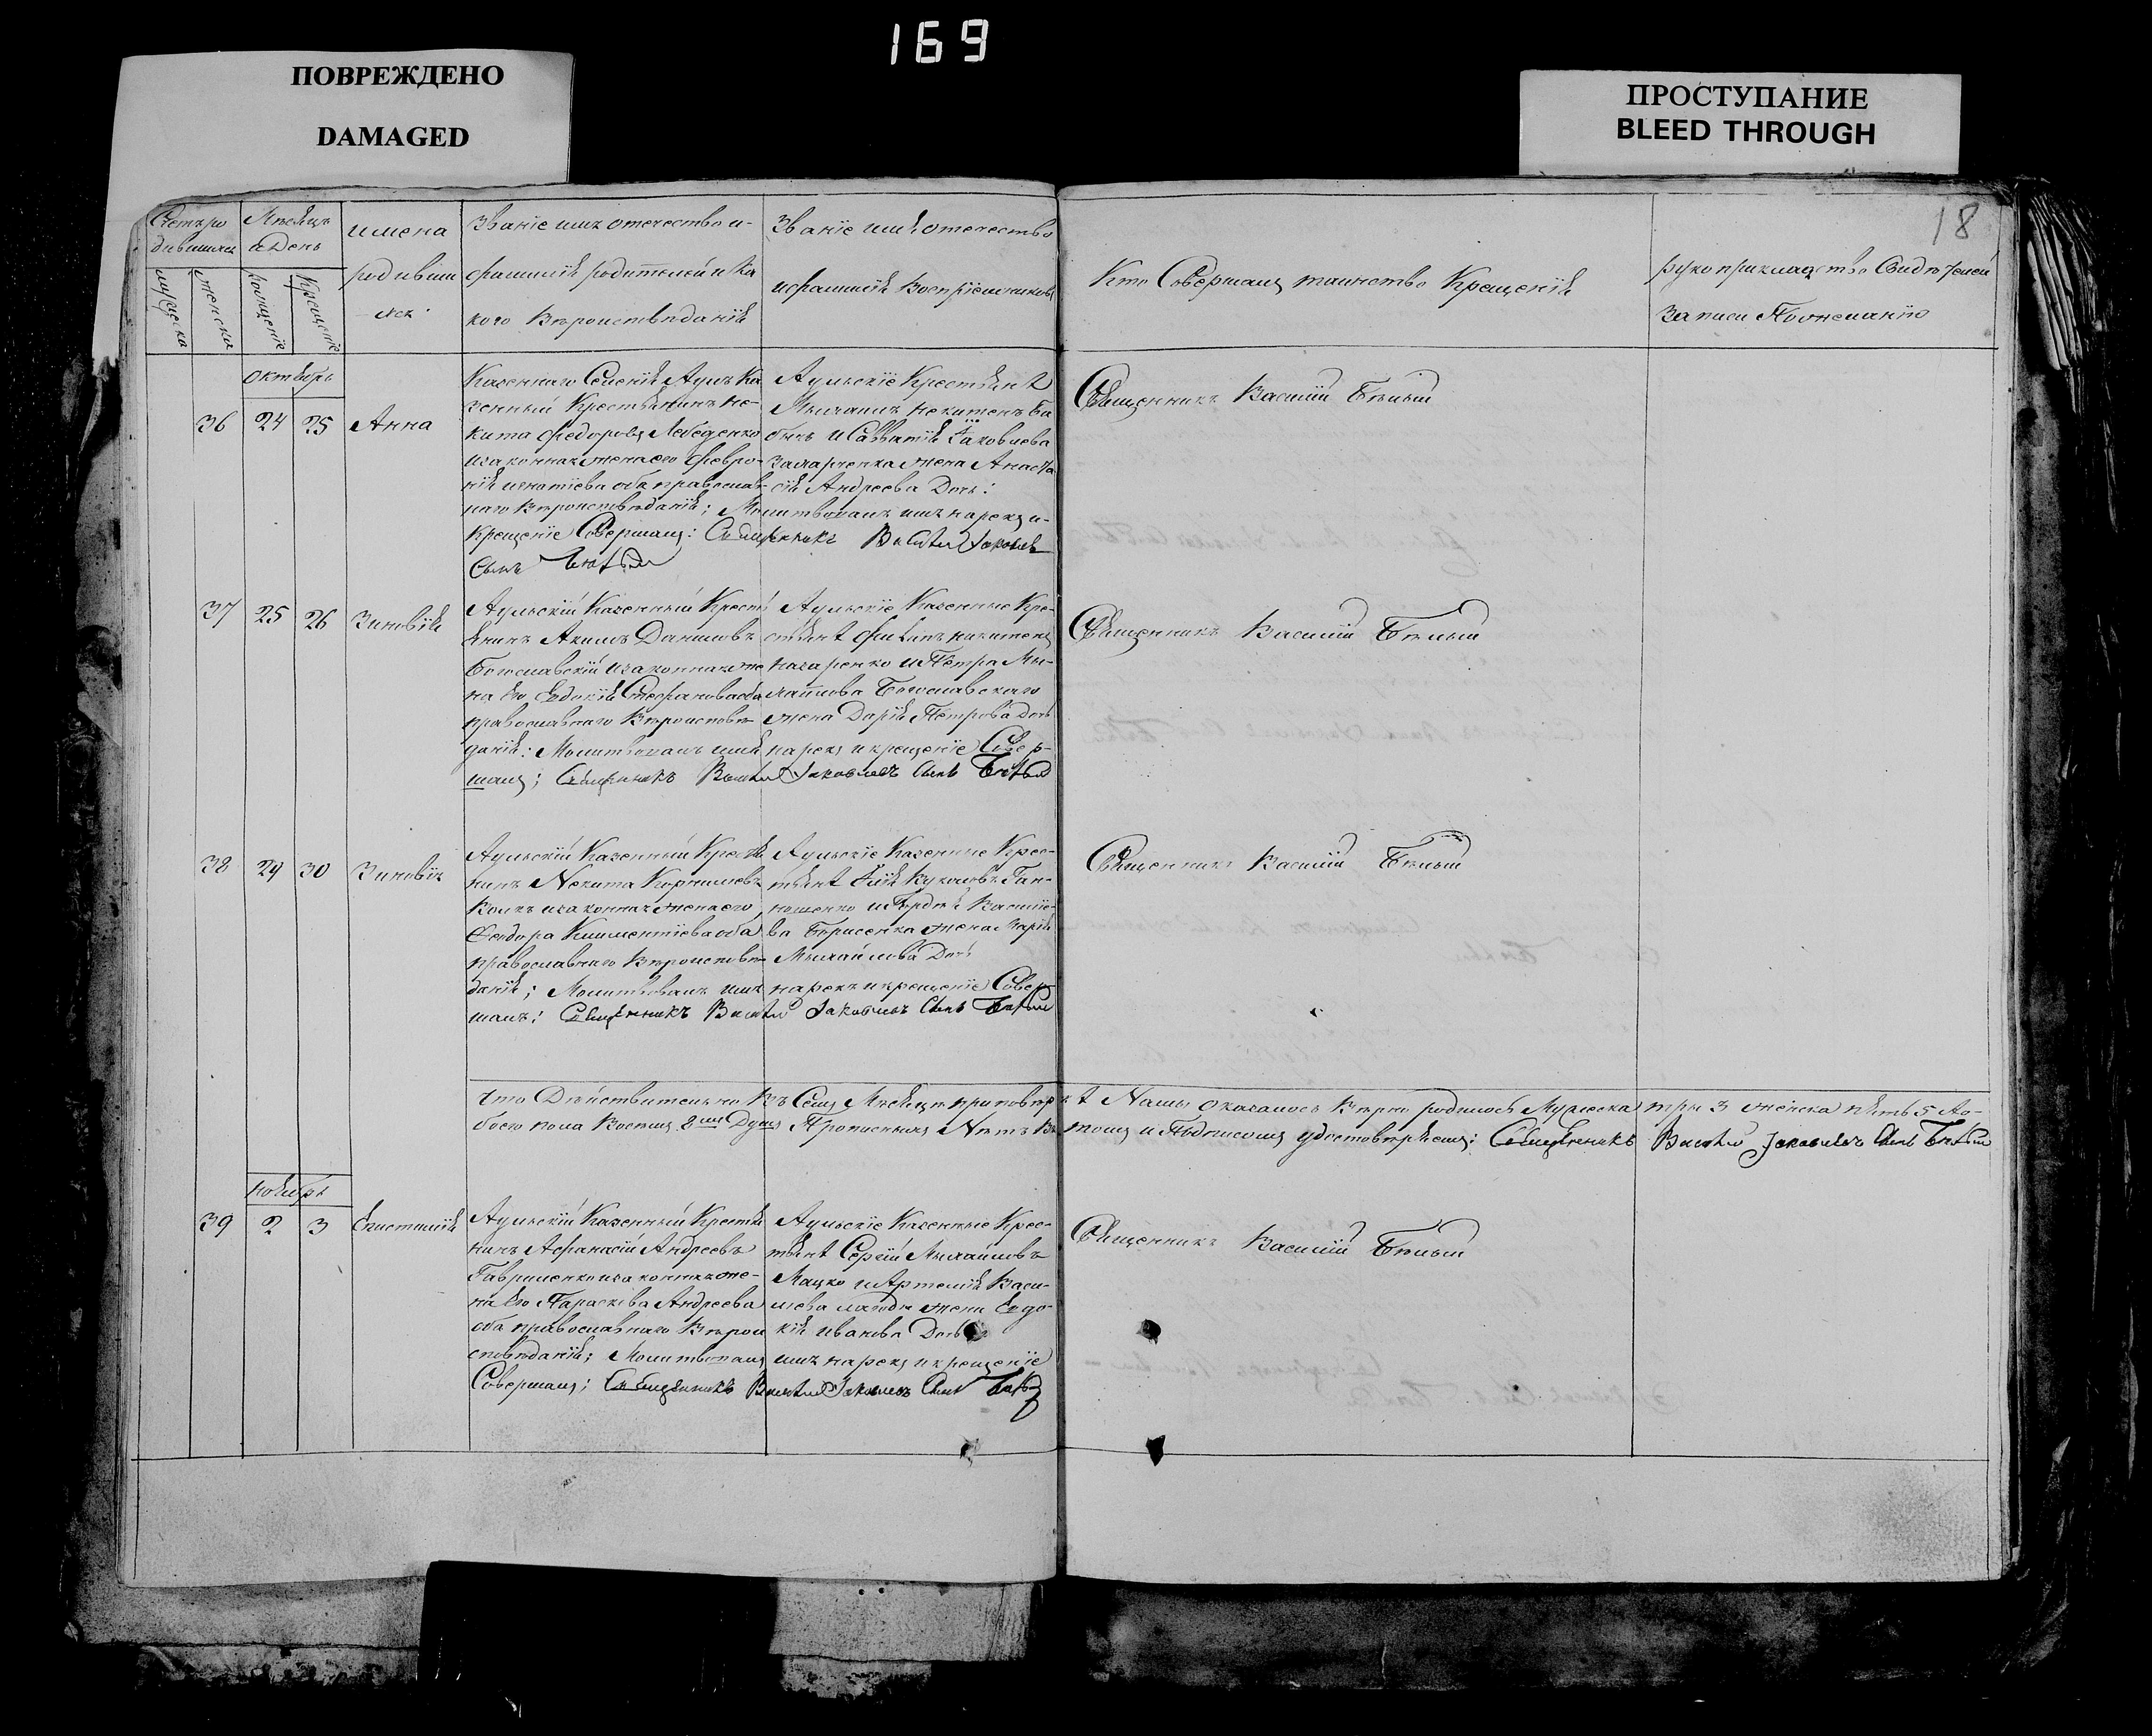 169
ПОВРЕЖДЕНО
DAMAGED
ПРОСТУПАНИЕ
BLEED THROUGH
18
Мѣсяцъ
и День
имена
родивши
мужеска
женска
Крещеніе
Званіе имя отечество и
фамилія родителей и ка
кого Вѣроисповѣданія
Званіе имя отечество
и фамилія Воспріемниковъ
Кто Совершалъ таинство Крещенія
рукоприкладство Свидѣтелей
Записи По желанію
октябрь
36 24 25 Анна
Казеннаго Селенія Аулъ Ка
зенный Крестьянинъ Не-
кита Федоровъ Лебеденко
и законная жена его Февро-
нія Игнатіева оба православ-
наго Вѣроисповѣданія; Молитвовалъ имя нарекъ и
крещеніе Совершалъ: Священникъ Василій Іаковлев
Сынъ Бѣлый
Аульскіе Крестьяне
Яковлева
жена Анаста
сія Андреева Дочь:
Священникъ Василій Бѣлый
37 25 26 Зиновія
Аульскій Казенный Кресть
янинъ Акимъ Даниловъ
Богославскій и законная же
на Его Евдокія Стефанова оба
православнаго Вѣроисповѣ
данія: Молитвовалъ имя нарекъ и крещеніе Совер-
шалъ; Священникъ Василій Іаковлевъ Сынъ Бѣлый
Аульскіе Казенные Кре-
стьяне
Назаренко и Петра Ми-
хайлова Богославскаго
жена Дарія Петрова Дочь
Священникъ Василій Бѣлый
38 29 30 Зиновія
Аульскій Казенный Крестья
нинъ Некита Корнилиевъ
и законная жена его,
Феодора Климентіева оба
православнаго Вѣроисповѣ
данія; Молитвовалъ имя нарекъ и крещеніе Совер-
шалъ: Священникъ Василій Іаковлевъ Сынъ Бѣлый
Аульскіе Казенные Крес-
тьяне Илія Вуколовъ Ган-
ношенко и Гордѣя Василіе-
ва Борисенка жена Марія
Михайлова Дочь
Священникъ Василій Бѣлый
Что Дѣйствительно Въ Семъ Мѣсяцѣ по повѣркѣ Нашей оказалось Вѣрно родилось Мужеска три 3 женска пять 5 Ао-
боего пола Восемь 8 Душъ Прописныхъ Нѣтъ Въ томъ и Подписомъ удостовѣряемъ: Священникъ Василій Іаковлевъ Сынъ Бѣлый
ноябрь
39 2 3
Аульскій Казенный Крестья
нинъ Афанасій Андреевъ
Гавриленко и законная же-
на Его Параскева Андреева
оба православнаго Вѣрои
сповѣданія; Молитвовалъ имя нарекъ и крещеніе
Совершалъ; Священникъ Василій Іаковлевъ Сынъ Бѣлый
Аульскіе Казенные Крес-
тьяне Сергій Михайловъ
Мацко и Артемія Васи-
лева жена Евдо-
кія Иванова Дочь
Священникъ Василій Бѣлый